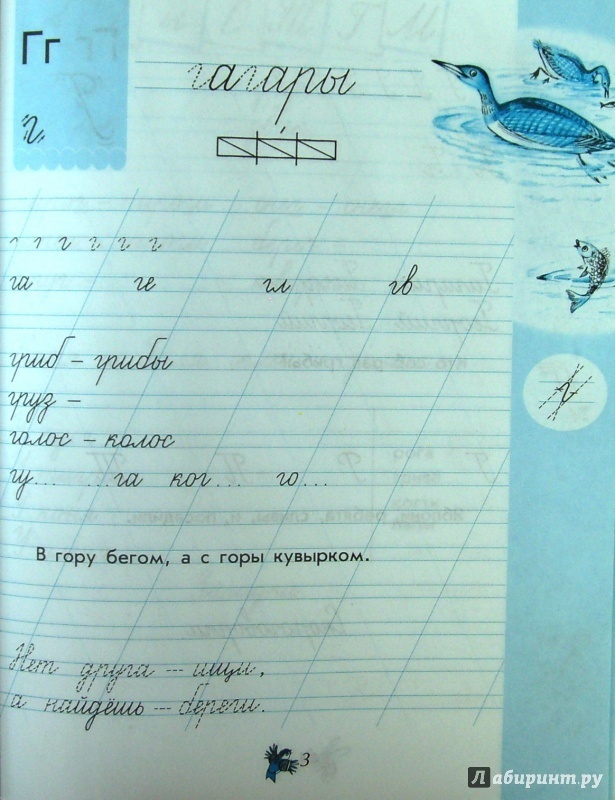 Гг
г
гагары
г г г г г г
га ге гл гв
гриб – грибы
груз –
голос – колос
гу... ...га ког... го...
г
В гору бегом, а с горы кувырком.
Нет друга — ищи,
а найдёшь — береги.
3
Лабиринт.ру